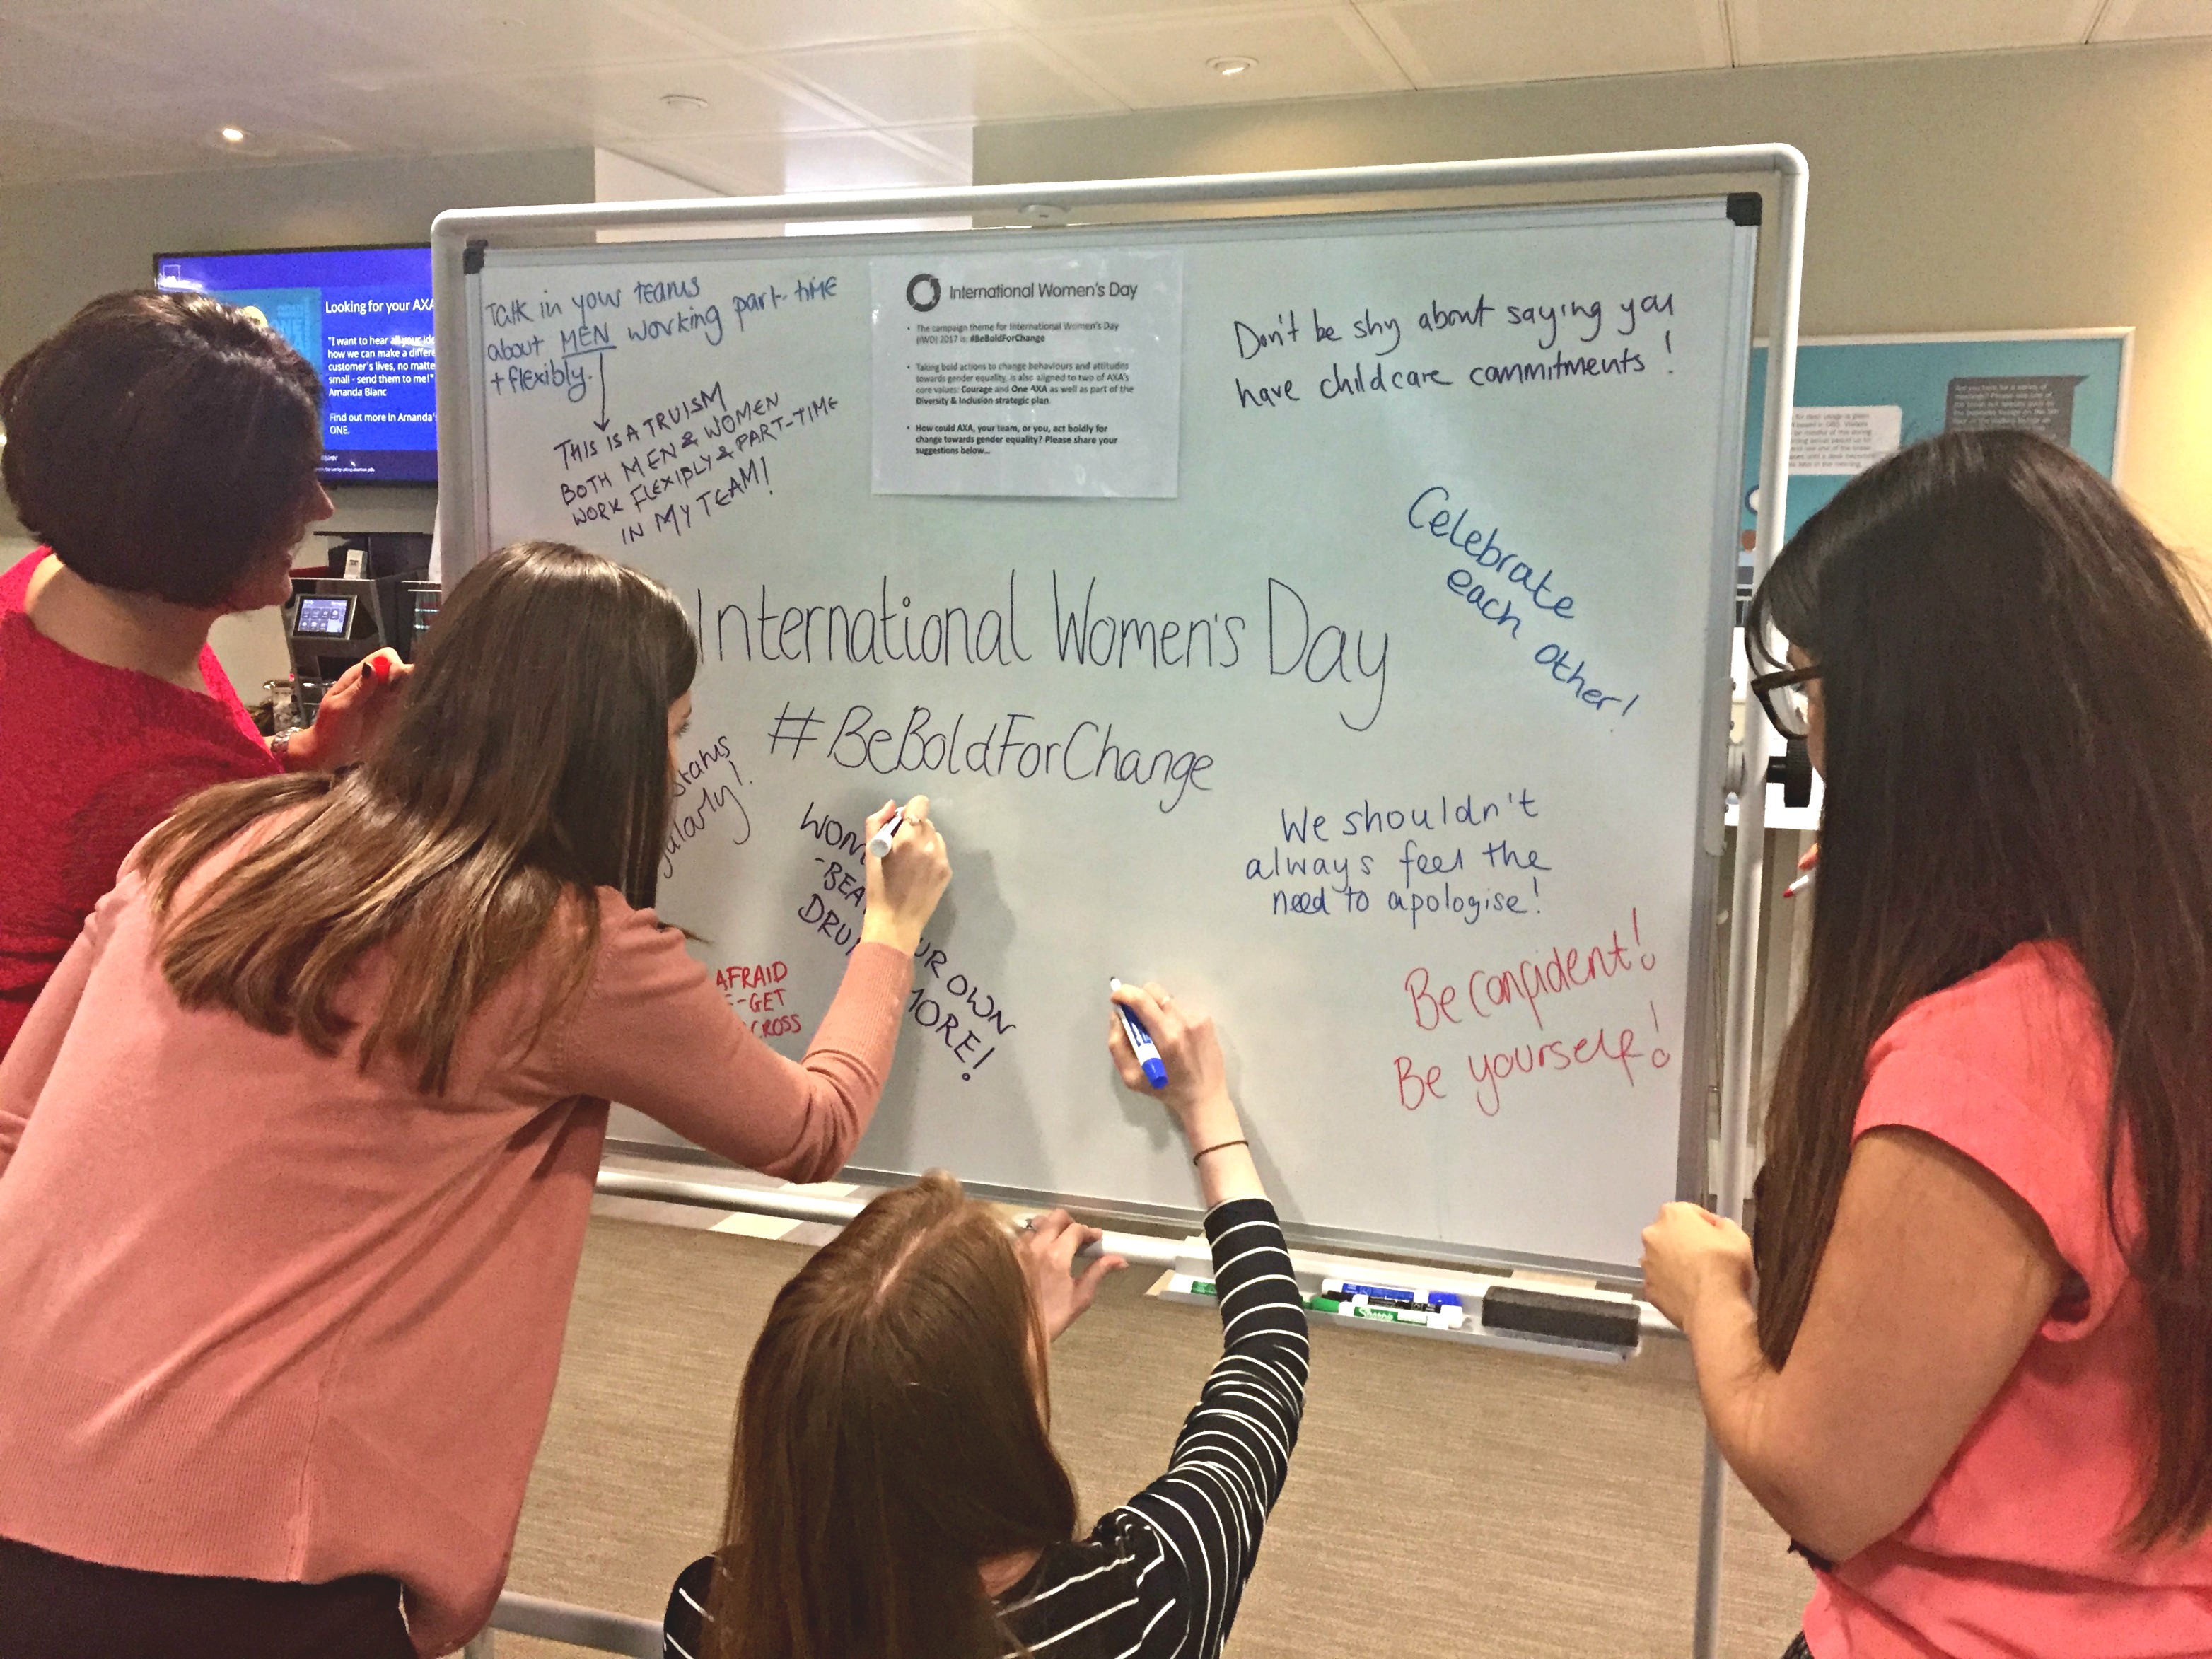 Looking for your AXA
"I want to hear all your ide
how we can make a differe
customer's lives, no matte
small - send them to me!"
Amanda Blanc
Find out more in Amanda'
ONE.
Talk in your teams
about MEN working part-time
+ flexibly.
THIS IS A TRUISM
BOTH MEN & WOMEN
WORK FLEXIBLY & PART-TIME
IN MY TEAM!
International Women's Day
• The campaign theme for International Women's Day
(IWD) 2017 is: #BeBoldForChange
• Taking bold actions to change behaviours and attitudes
towards gender equality, is also aligned to two of AXA's
core values: Courage and One AXA as well as part of the
Diversity & Inclusion strategic plan
• How could AXA, your team, or you, act boldly for
change towards gender equality? Please share your
suggestions below...
Don't be shy about saying you
have childcare commitments!
Celebrate
each other!
International Women's Day
#BeBoldForChange
status
gularly!
WOM
-BEA UR OWN
DRU MORE!
AFRAID
E-GET
CROSS
We shouldn't
always feel the
need to apologise!
Be confident!
Be yourself!